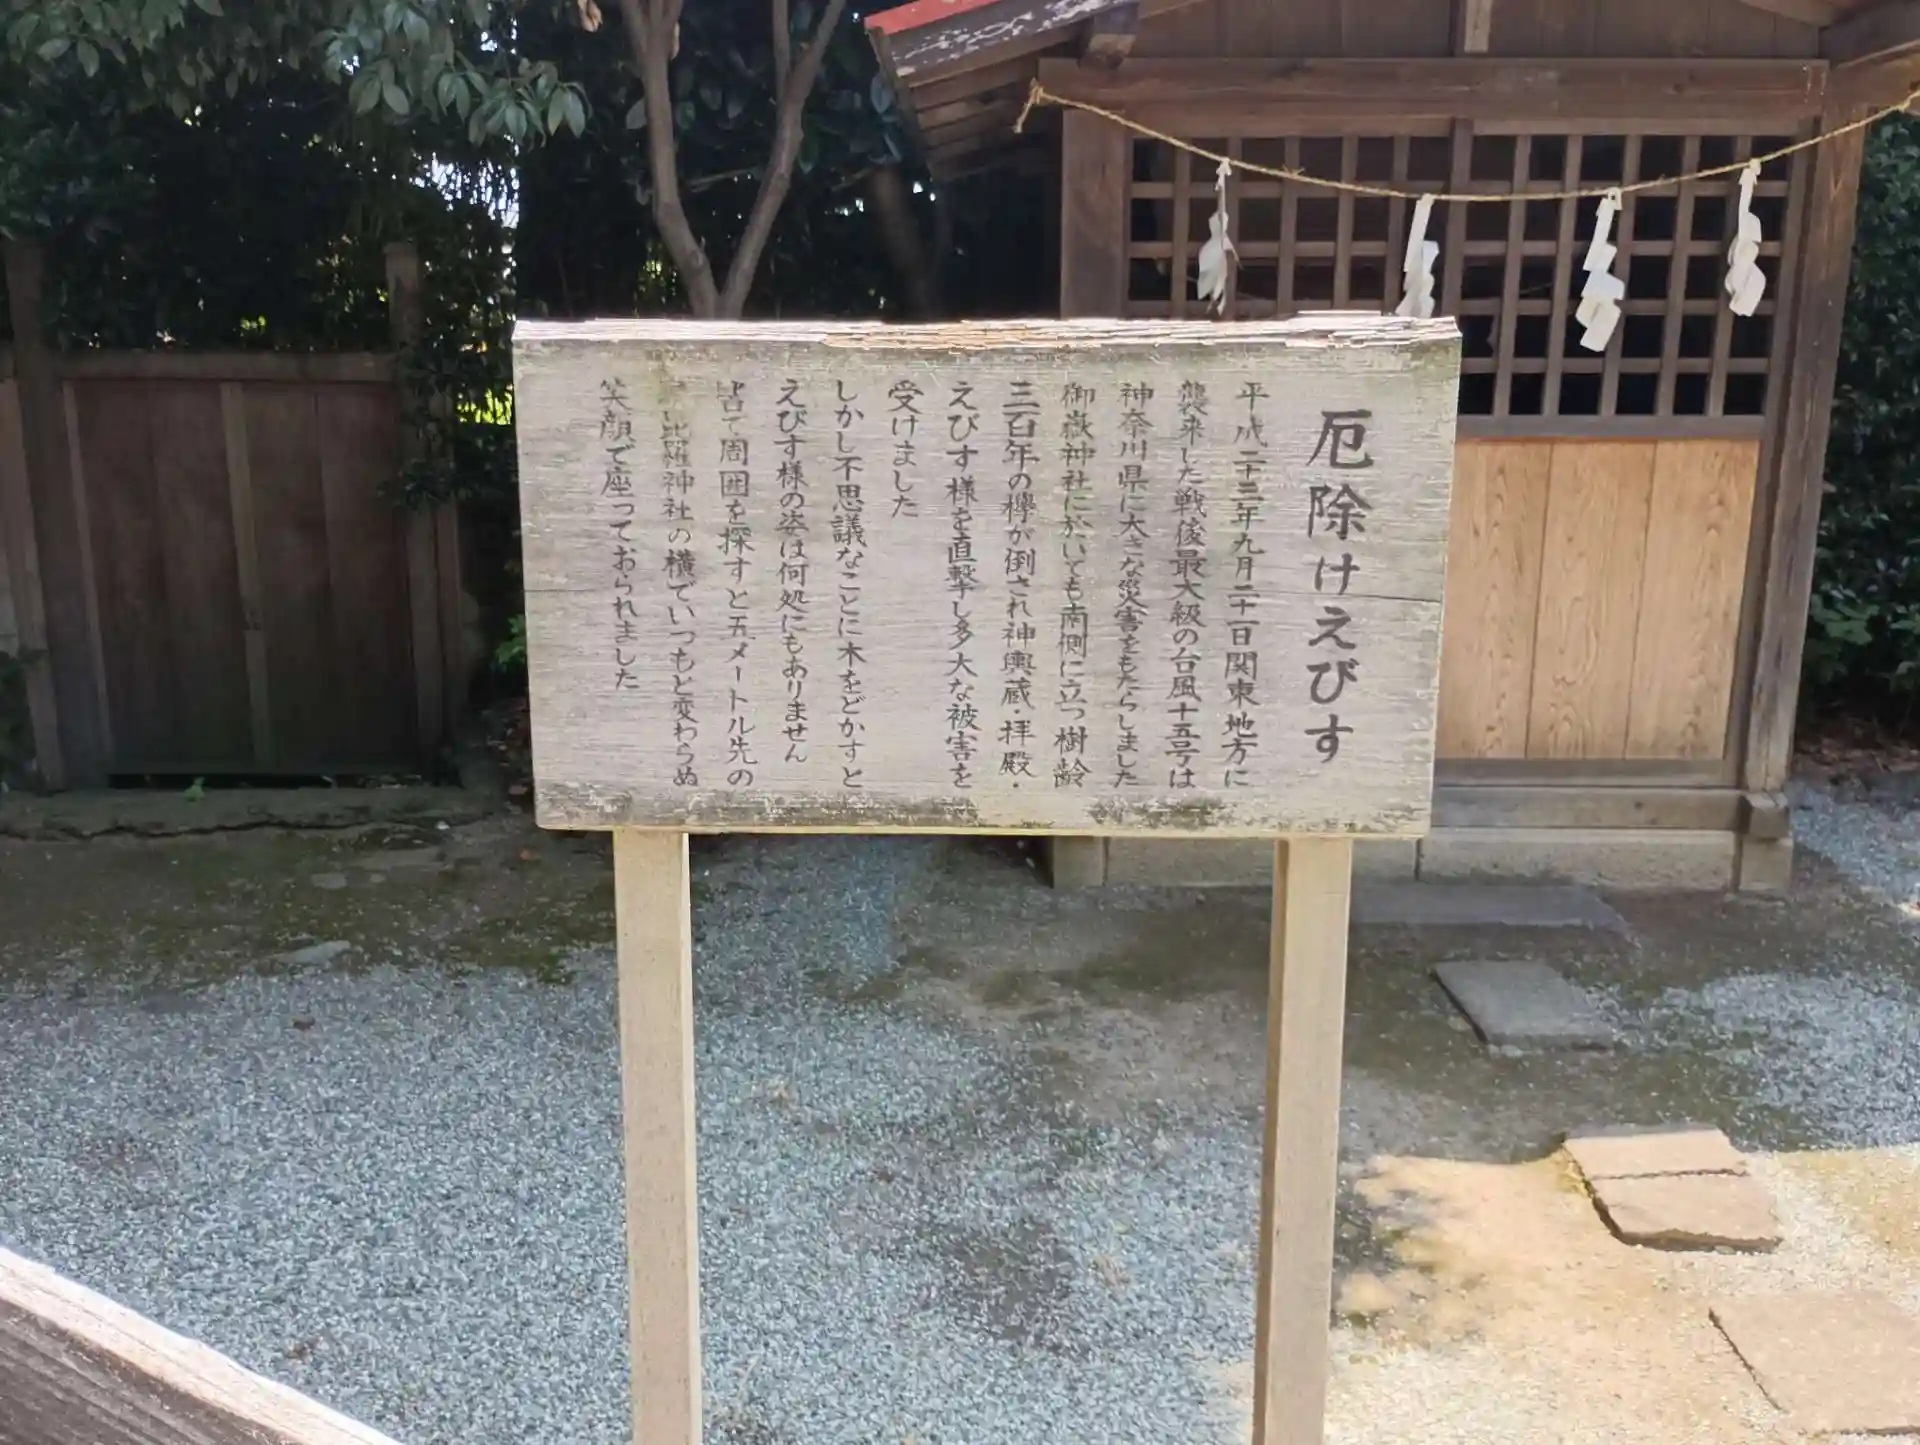 厄除けえびす
平成二十三年九月二十一日関東地方に
襲来した戦後最大級の台風十五号は
神奈川県に大きな災害をもたらしました
御嶽神社に於いても南側に立つ樹齢
三百年の欅が倒され神輿蔵・拝殿・
えびす様を直撃し多大な被害を
受けました
しかし不思議なことに木をどかすと
えびす様の姿は何処にもありません
皆で周囲を探すと五メートル先の
比羅神社の横でいつもと変わらぬ
笑顔で座っておられました